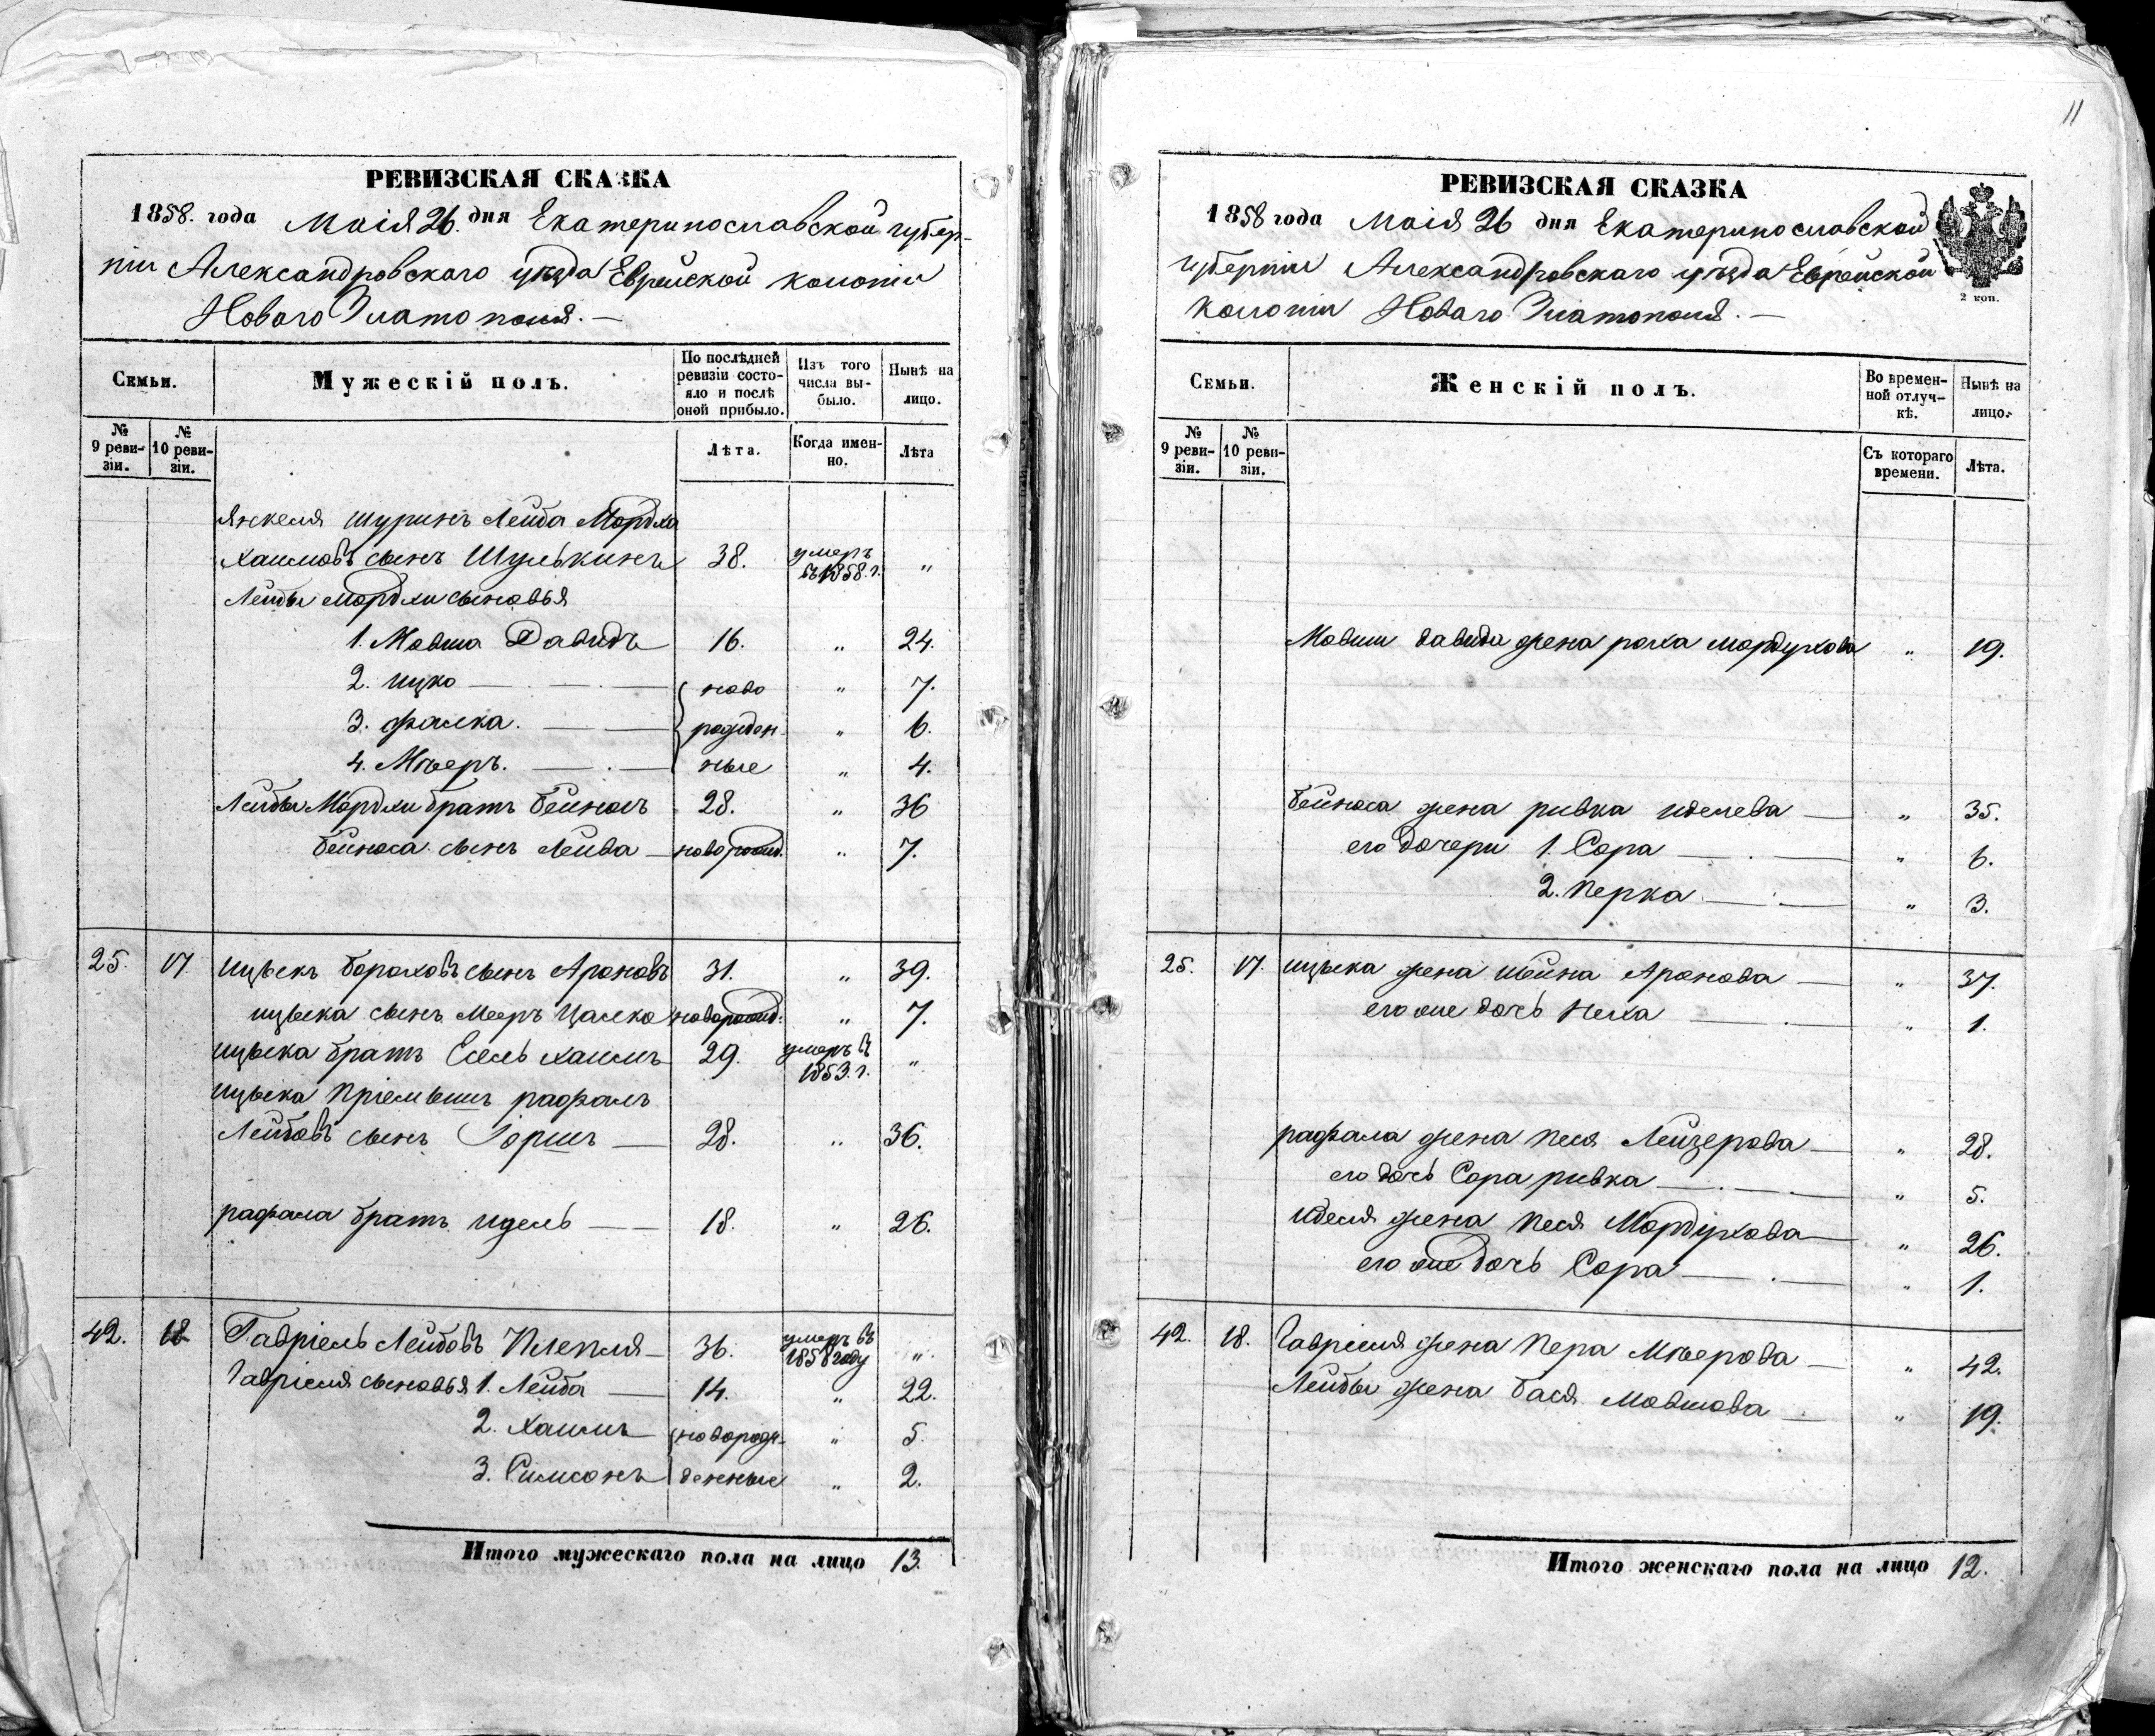 РЕВИЗСКАЯ СКАЗКА
1858. года Маія 26. дня Екатеринославской губер-
ніи Александровскаго уѣзда Еврейской колоніи
Новаго Златополя. —
Семьи.
Мужескій полъ.
По послѣдней ревизіи состо-яло и послѣ оной прибыло.
Изъ того числа вы-было.
Нынѣ на лицо.
№ 9 реви-зіи.
№ 10 реви-зіи.
Лѣта.
Когда имен-но.
Лѣта
Янкеля шуринъ Лейба Мордха
Хаимовъ сынъ Шулькинъ 38. умеръ въ 1858. г. „
Лейбы Мордхи сыновья
1. Мовша Давидъ 16. „ 24.
2. Ицко — ново „ 7.
3. Фалка. — рожден- „ 6.
4. Мѣеръ. — ные „ 4.
Лейбы Мордхи братъ Бейносъ 28. „ 36
Бейноса сынъ Лейба — новорожд. „ 7.
25. 17. Ицыкъ Бороховъ сынъ Ароновъ 31. „ 39.
Ицыка сынъ Мееръ Цалко новорожд: „ 7.
Ицыка братъ Есель Хаимъ 29. умеръ въ 1853. г. „
Ицыка пріемышъ Рафаль
Лейбовъ сынъ Горшъ — 28. „ 36.
Рафала братъ Идель — 18. „ 26.
42. 18 Гавріель Лейбовъ Плепля — 36. умеръ въ 1858 году „
Гавріеля сыновья 1. Лейба — 14. „ 22.
2. Хаимъ новорож- „ 5.
3. Симсонъ денные „ 2.
Итого мужескаго пола на лицо 13.
11
РЕВИЗСКАЯ СКАЗКА
1858 года Маія 26 дня Екатеринославской
губерніи Александровскаго уѣзда Еврейской
колоніи Новаго Златополя. —
2 коп.
Семьи.
Женскій полъ.
Во времен-ной отлуч-кѣ.
Нынѣ на лицо.
№ 9 реви-зіи.
№ 10 реви-зіи.
Съ котораго времени.
Лѣта.
Мовши Давида жена Роха Мордухова „ 19.
Бейноса жена Ривка Иделева — „ 35.
его дочери 1. Сора — „ 6.
2. Перка — „ 3.
25. 17. Ицыка жена Шейна Аронова — „ 37.
его же дочь Неха — „ 1.
Рафала жена Песя Лейзерова — „ 28.
его дочь Сора Ривка — „ 5.
Иделя жена Песя Мордухова — „ 26.
его же дочь Сора — „ 1.
42. 18. Гавріеля жена Пера Мѣерова — „ 42.
Лейбы жена Бася Мовшова — „ 19.
Итого женскаго пола на лицо 12.